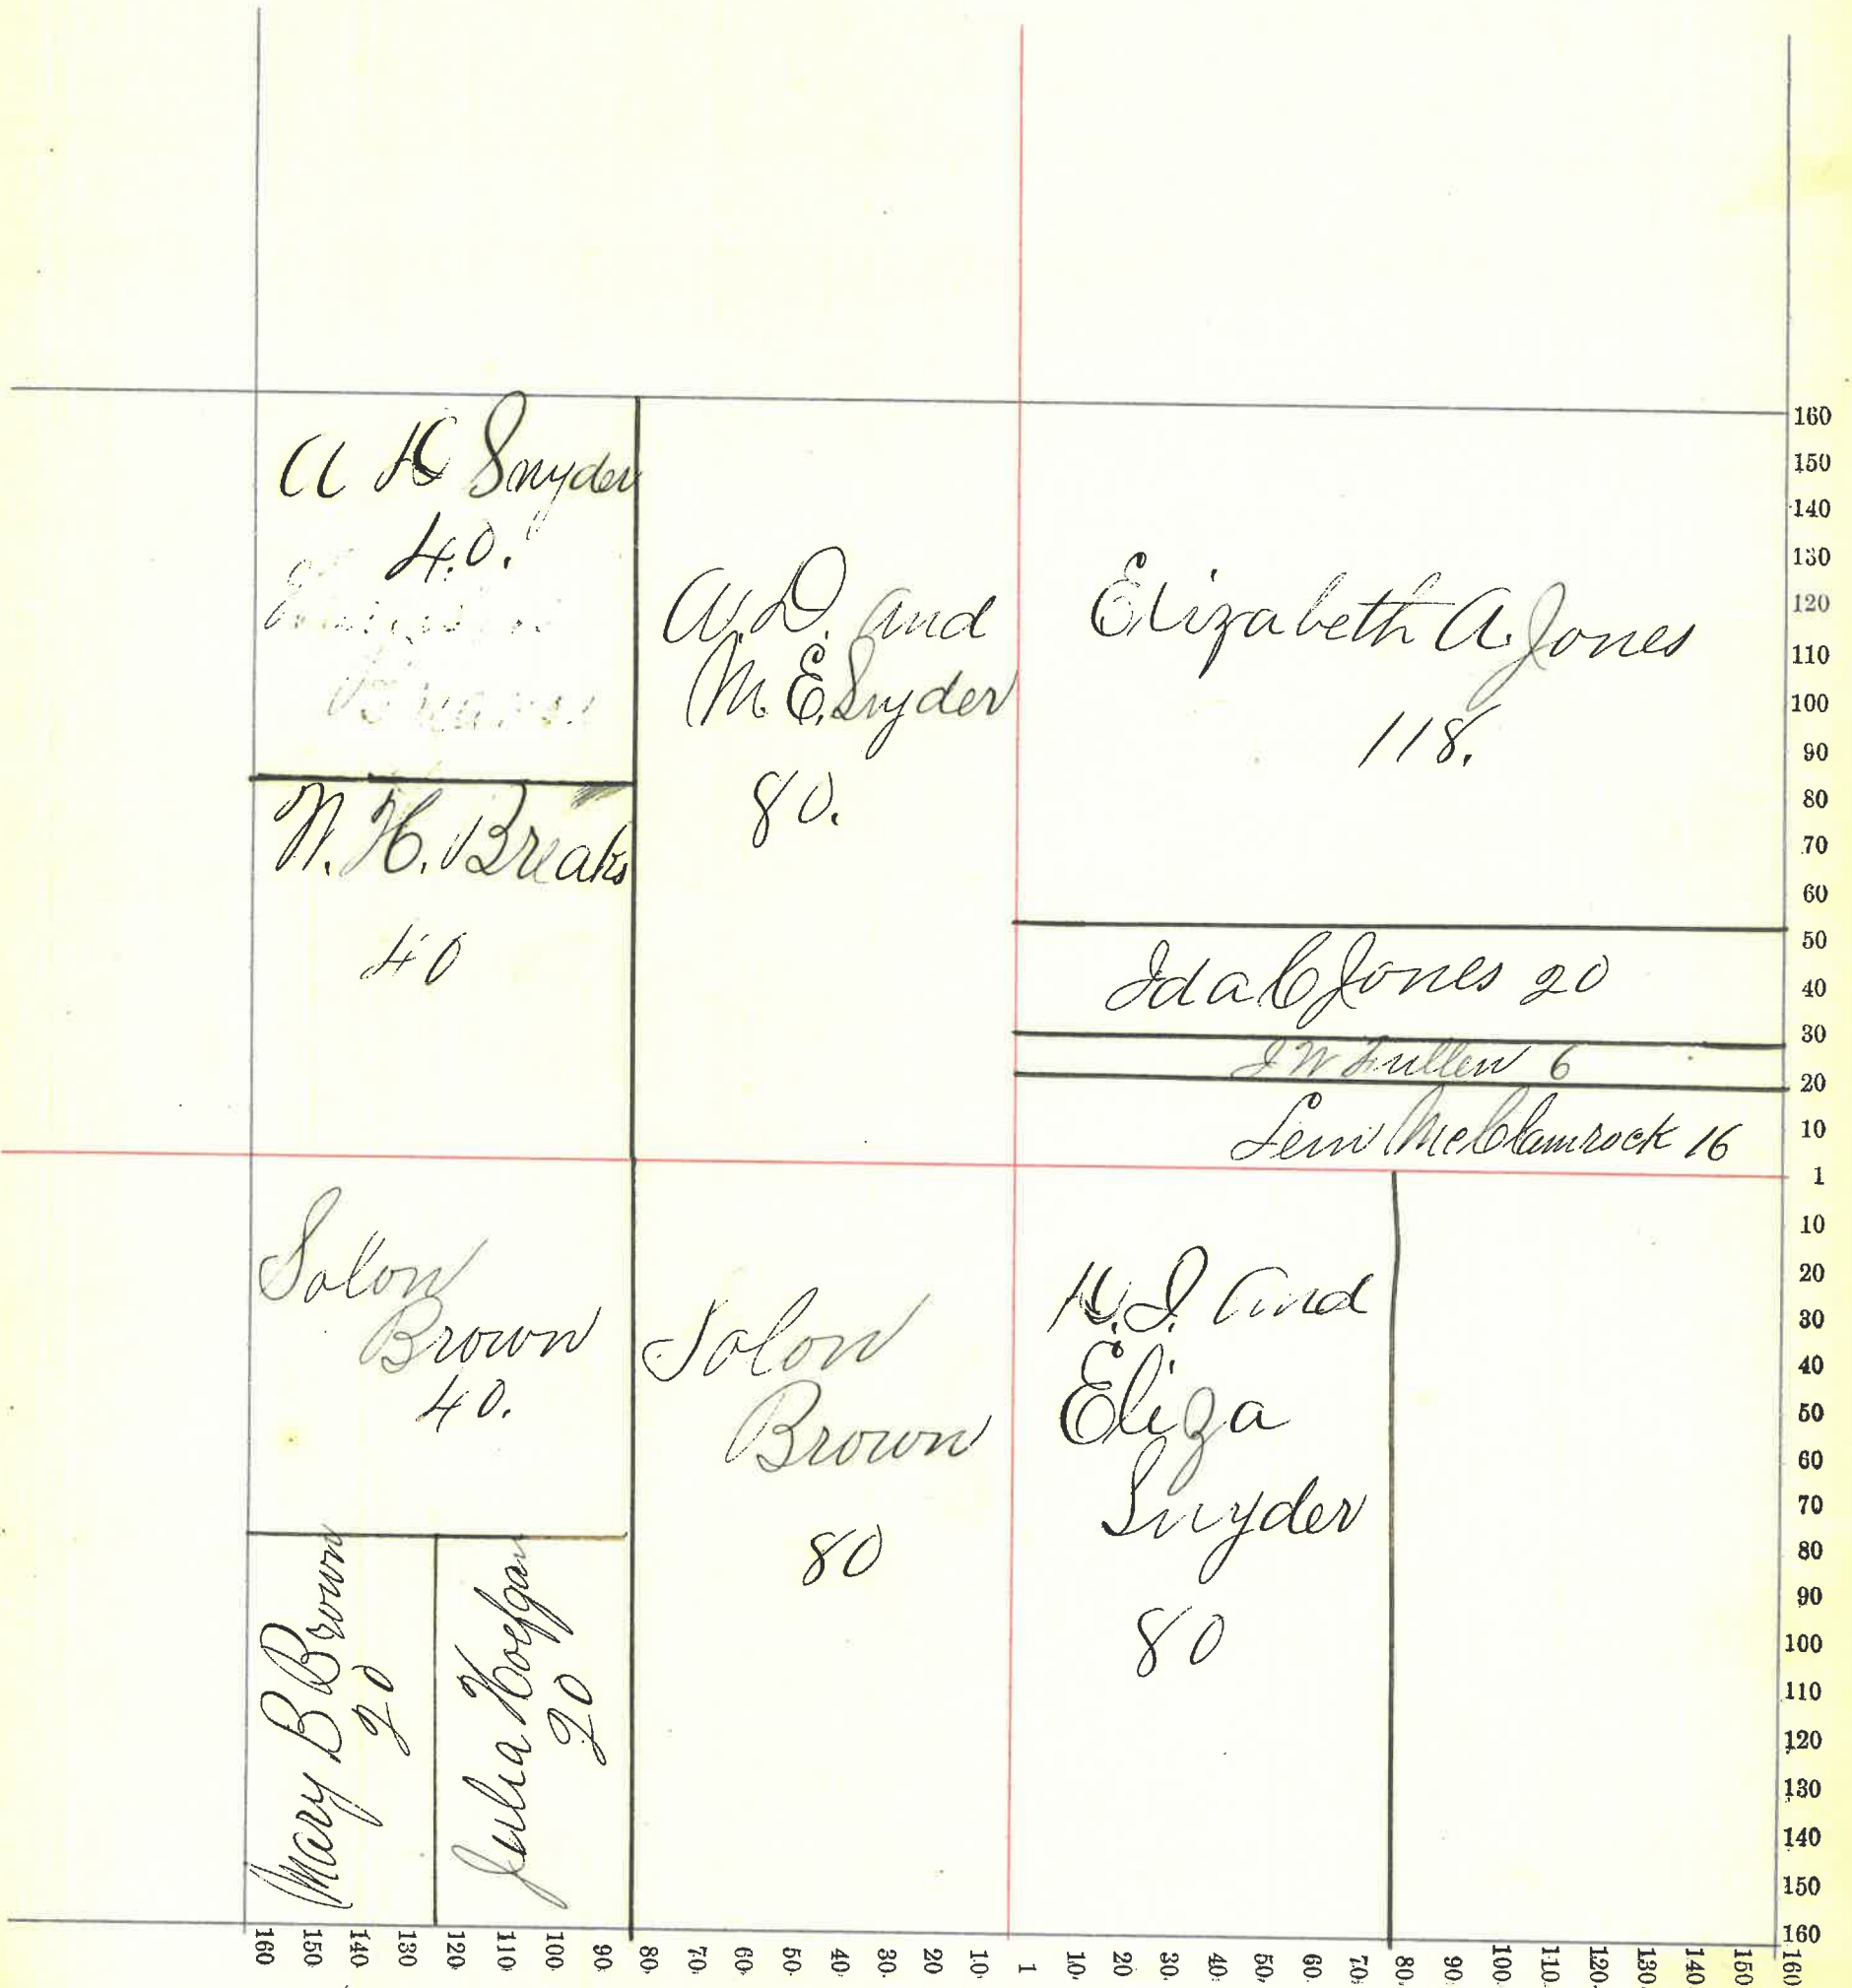 A H Snyder
40.
A. D. and
M. E. Snyder
80.
Elizabeth A. Jones
118.
N. H. Breaks
40
Ida C Jones 20
J W Fullen 6
Lem McClamrock 16
Solon
Brown
40.
Solon
Brown
80
and
Eliza
Snyder
80
Mary B Brown
20
Julia
20
160
150
140
130
120
110
100
90
80
70
60
50
40
30
20
10
1
10
20
30
40
50
60
70
80
90
100
110
120
130
140
150
160
160 150 140 130 120 110 100 90 80 70 60 50 40 30 20 10 1 10 20 30 40 50 60 70 80 90 100 110 120 130 140 150 160